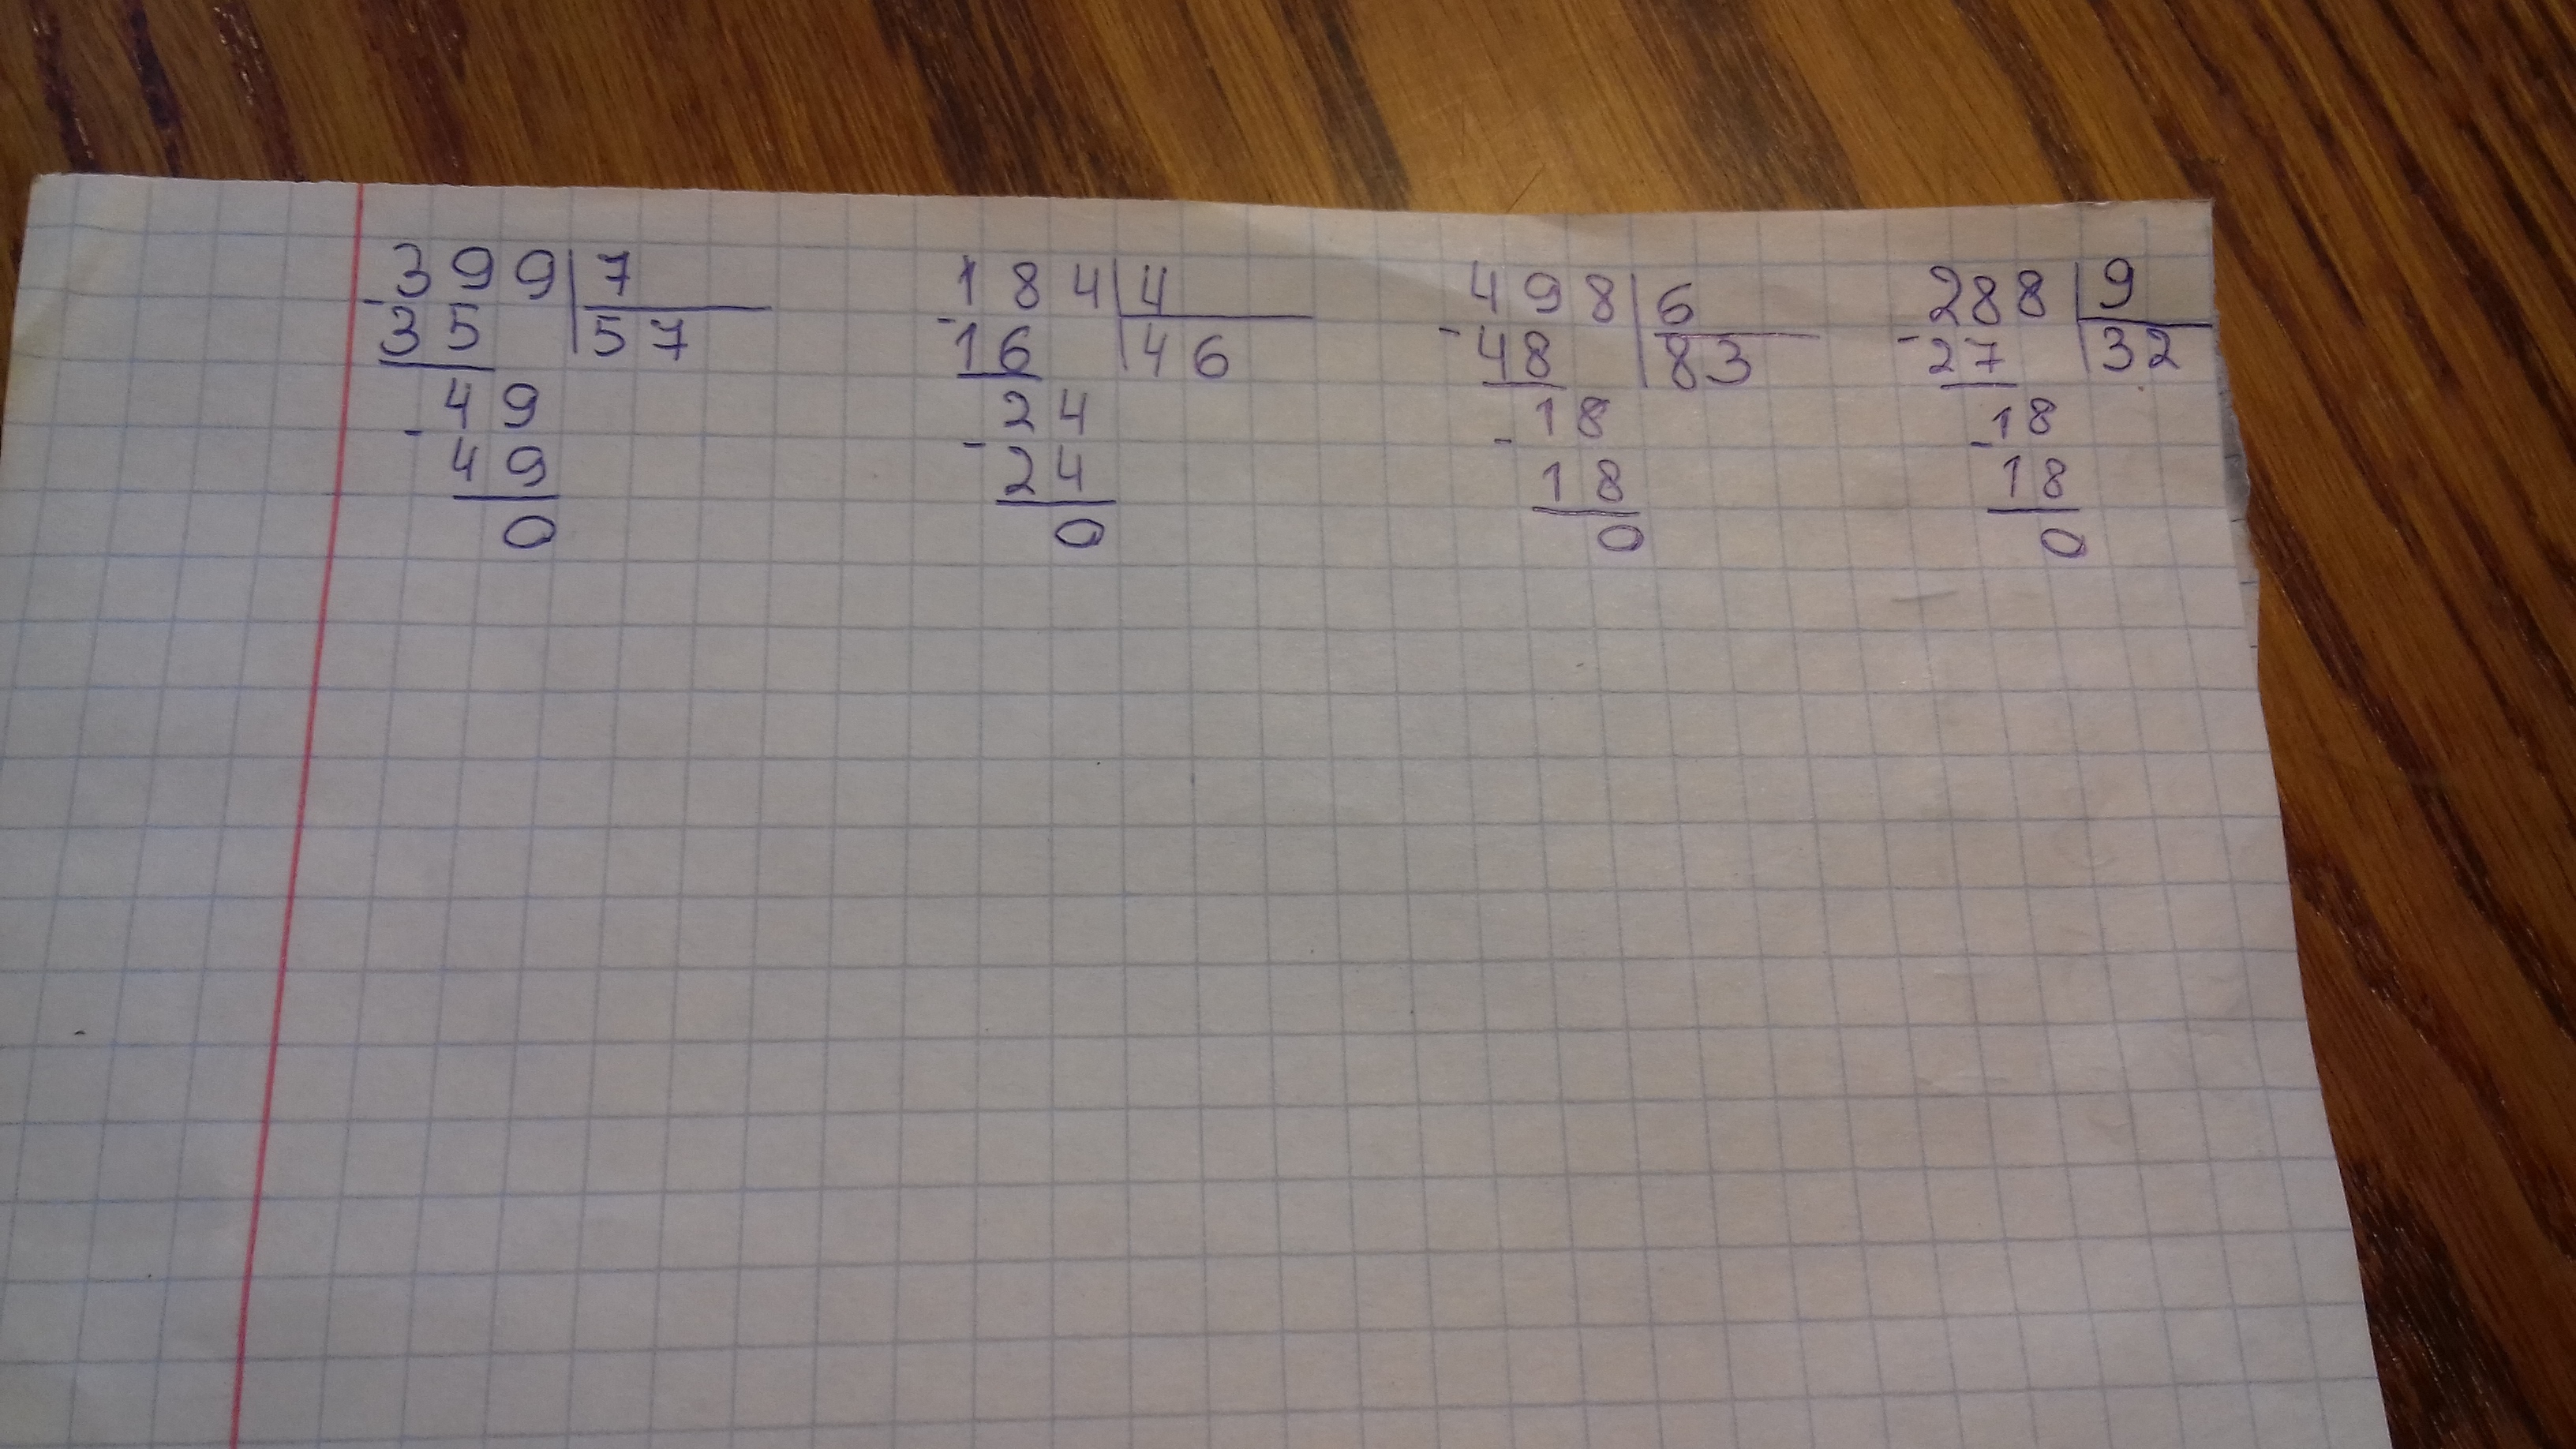 399 7
- 35 57
49
- 49
0
184 4
- 16 46
24
- 24
0
498 6
- 48 83
18
- 18
0
288 9
- 27 32
18
- 18
0